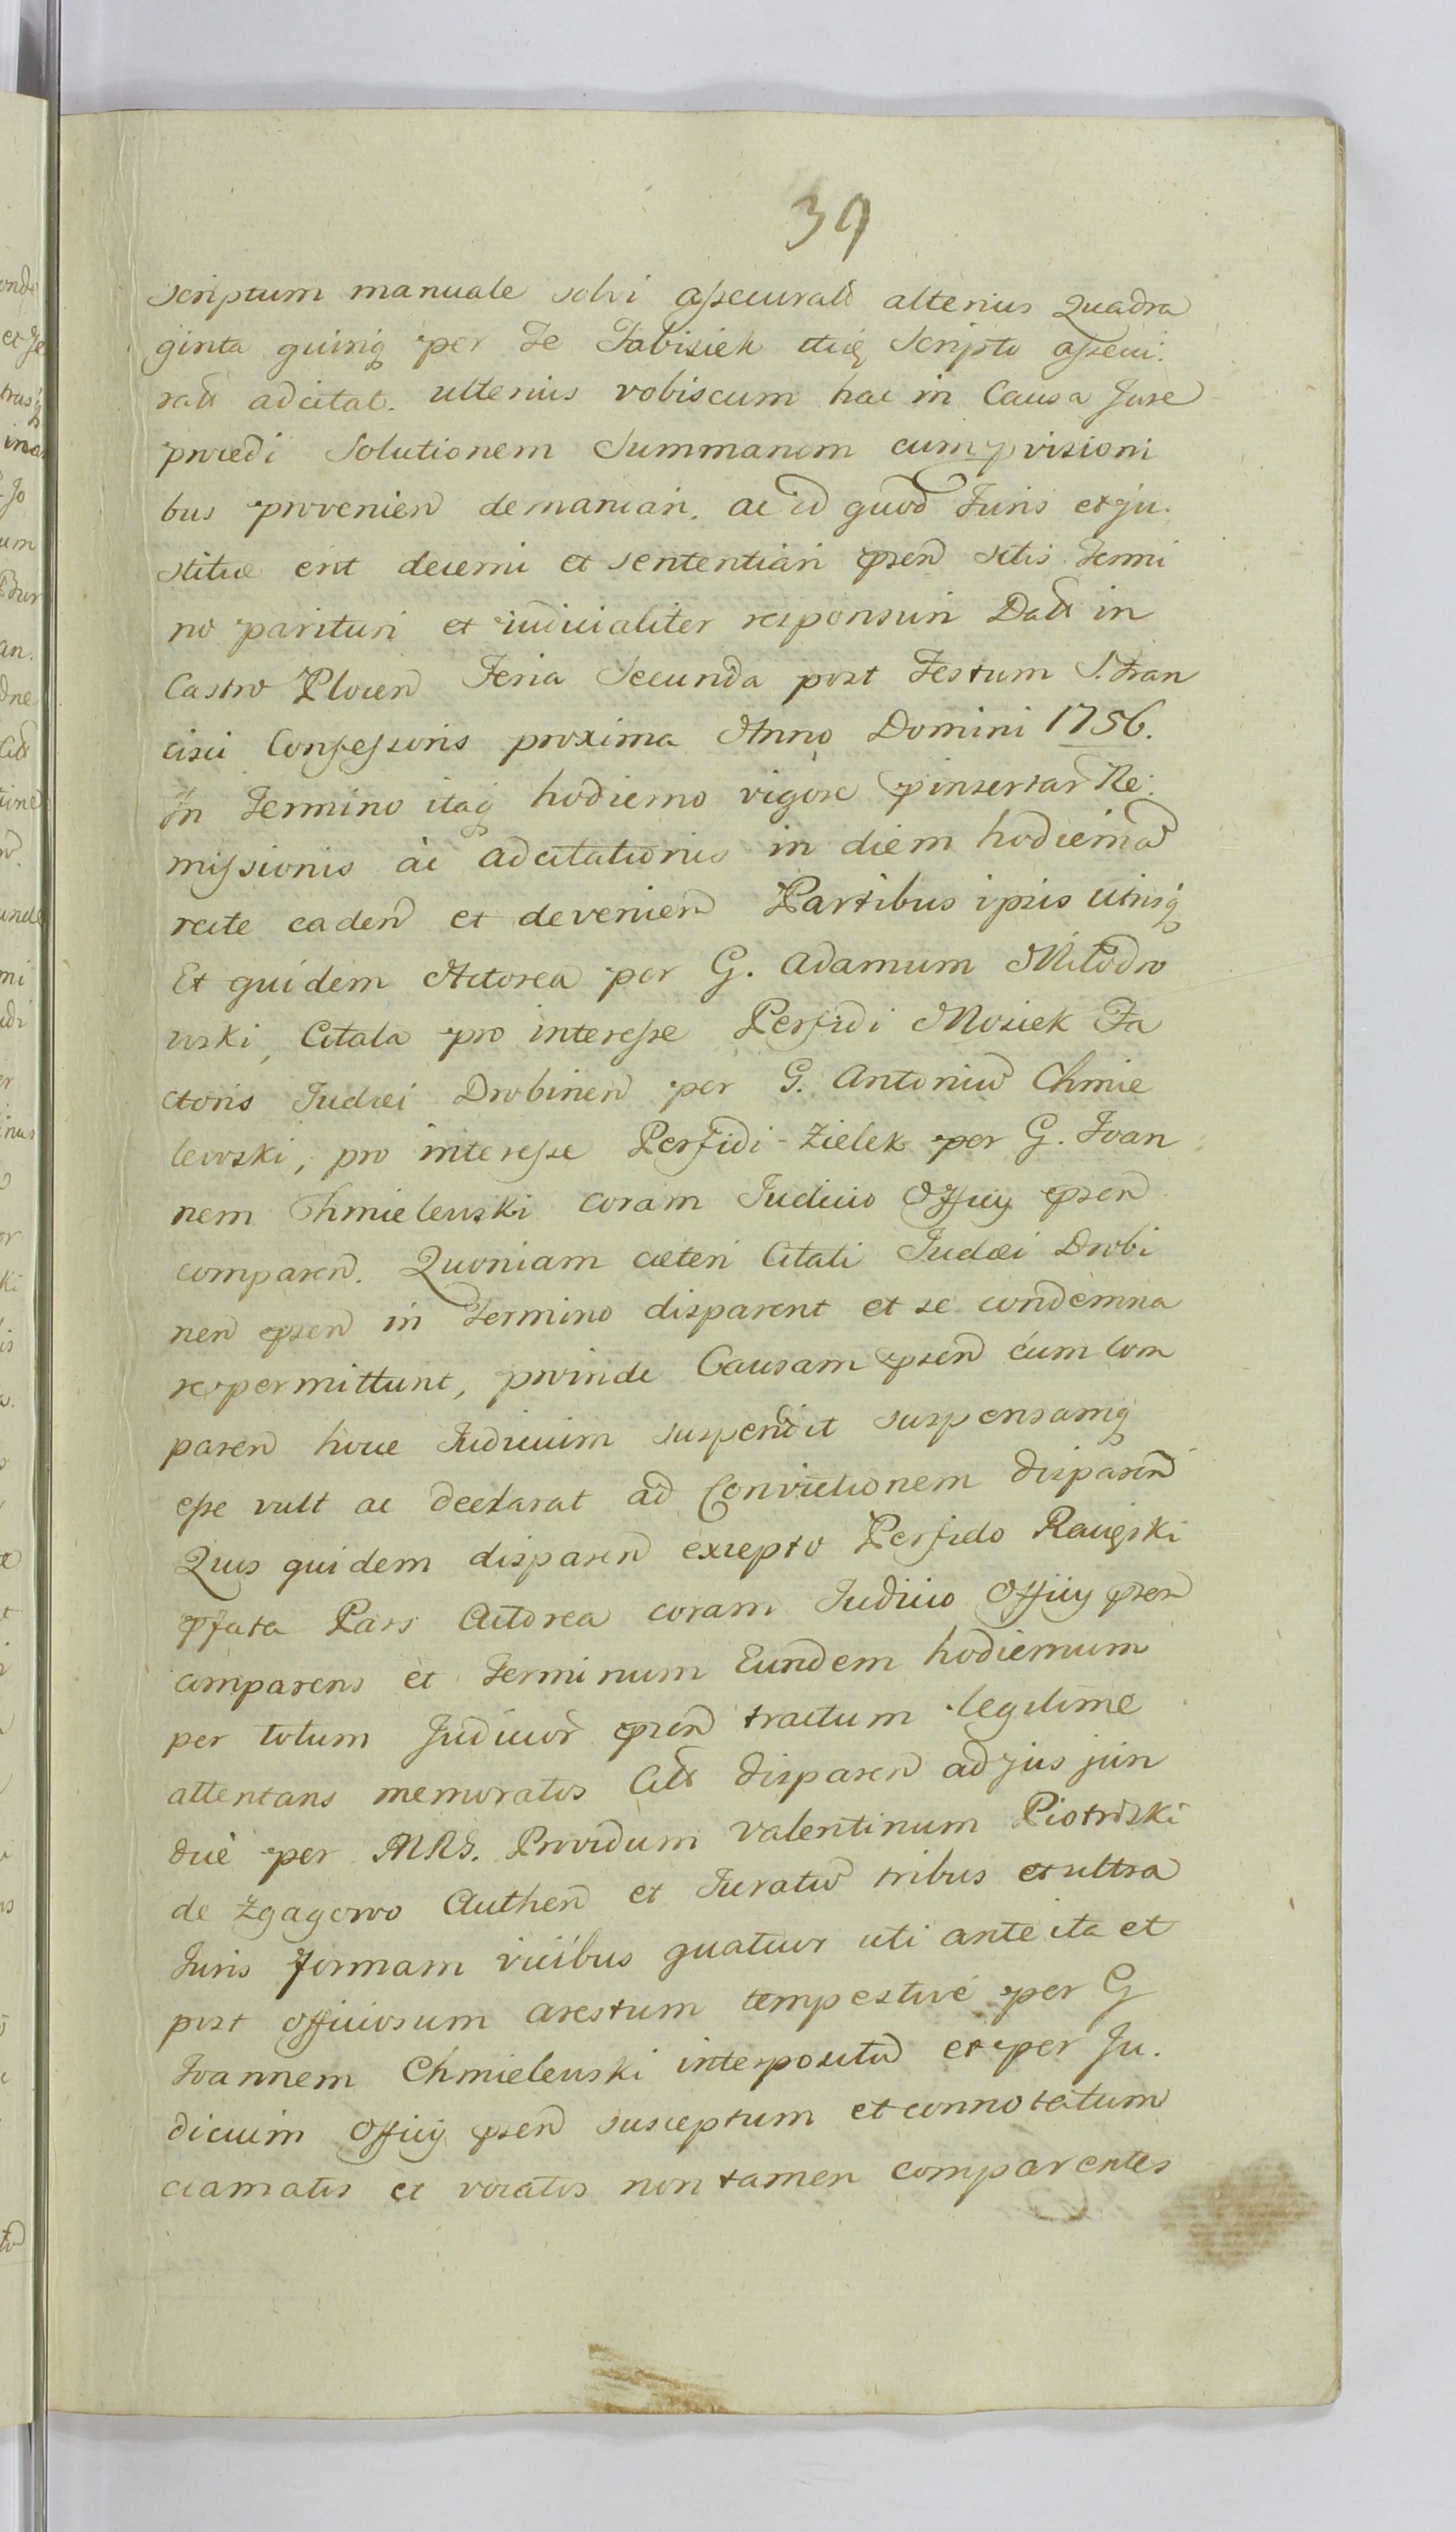 39
scriptum manuale solvi assecurato alterius Quadra
ginta quinq per Te Fabisiek Scripto assecu:
ratt adcitat. ulterius vobiscum hac in Causa Jure
procedi Solutionem Summarum cum provisioni
bus provenien demandari. ac id quod Juris et ju.
stitiæ erit decerni et sententiari præsen sitis Termi
no parituri et iudicialiter responsuri Datt in
Castro Plocen Feria Secunda post Festum S. Fran
cisci Confessoris proxima Anno Domini 1756.
In Termino itaq hodierno vigore pinsertar Re:
missionis ac adcitationis in diem hodierna
recte caden et devenien Partibus ipsis utrisq
Et quidem Actorea per G. Adamum Milodro
wski, Citata pro interesse Perfidi Mosiek Fa
ctoris Judæi Drobinen per G. Antoniu Chmie
lewski, pro interesse Perfidi Zielek per G. Joan
nem Chmielewski coram Judicio Officy præsen
comparen. Quoniam cæteri Citati Judæi Drobi
nen præsen in Termino disparent et se condemna
re permittunt, proinde Causam præsen cum com
paren hocce Judicium suspendit suspensamq
esse vult ac declarat ad Convictionem disparen
Quos quidem disparen excepto Perfido
pfata Pars Actorea coram Judicio Officy præsen
comparens et Terminum Eundem hodiernum
per totum Judicior præsen tractum legitime
attentans memoratos Citt disparen ad jus juri
dice per MRS. Providum Valentinum Piotrowski
de Zgagowo Authen et Juratu tribus et ultra
Juris formam vicibus quatuor uti ante ita et
post officiosum arestum tempestive per G
Joannem Chmielewski interpositu et per Ju.
dicium Officy præsen susceptum et connotatum
clamatos et vocatos non tamen comparentes